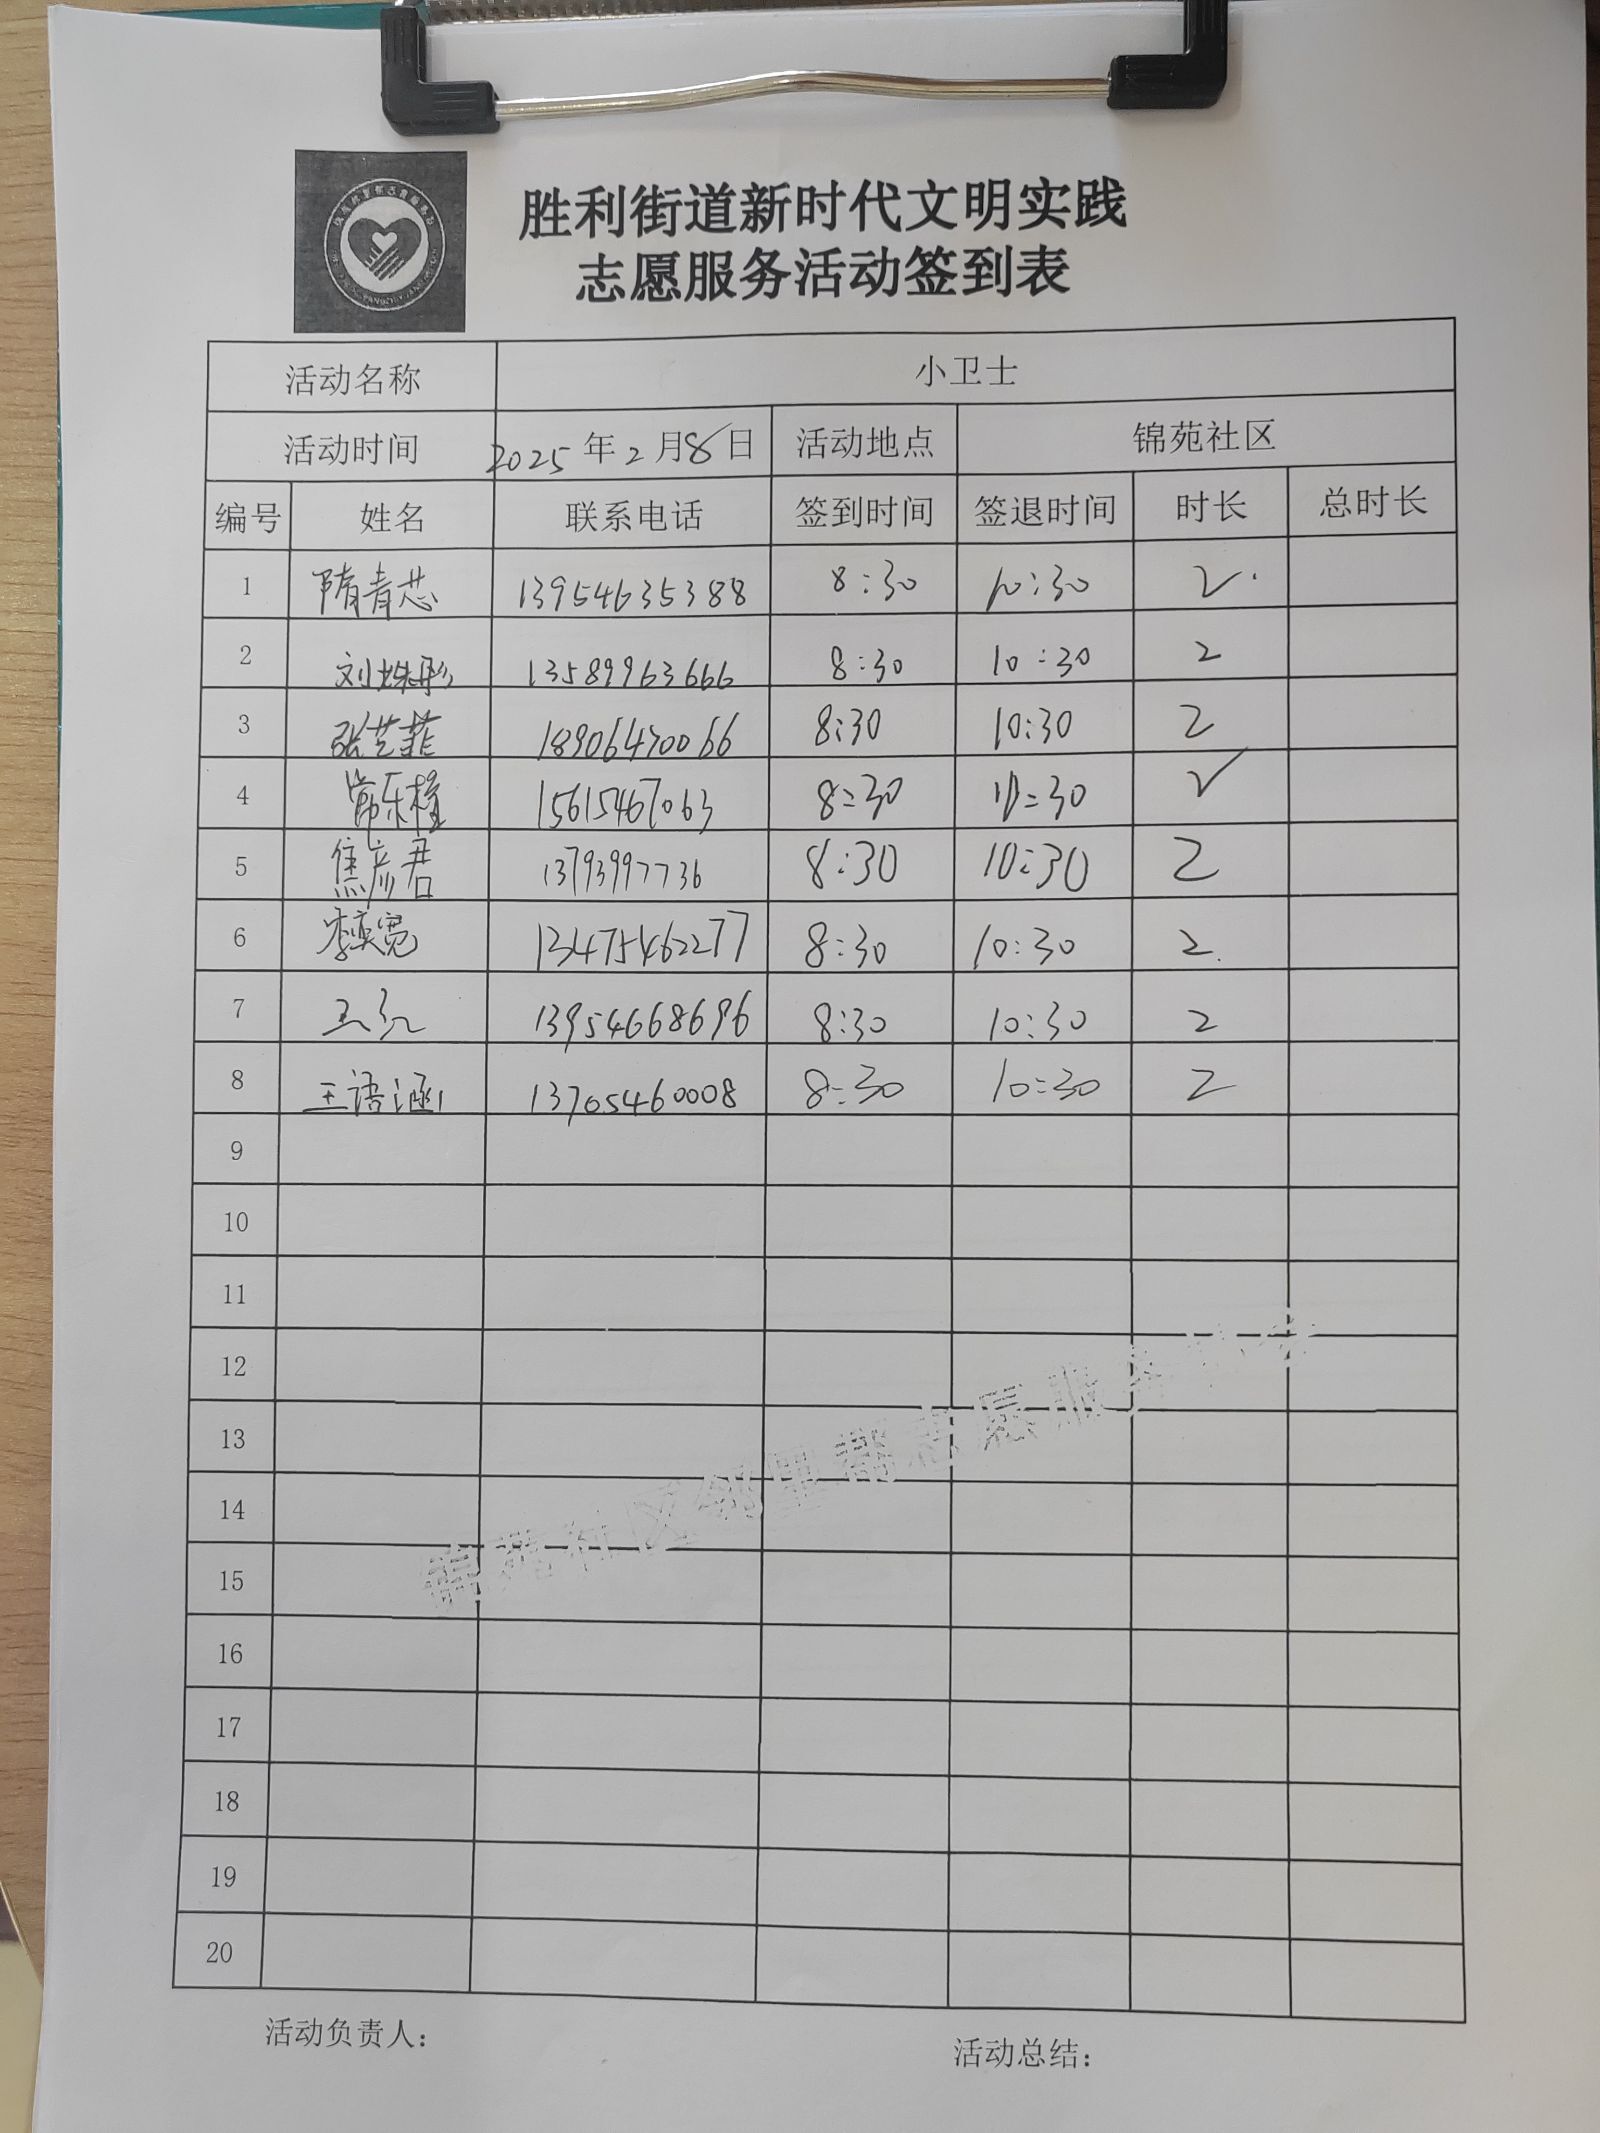 胜利街道新时代文明实践
志愿服务活动签到表
活动名称 小卫士
活动时间 2025年2月8日 活动地点 锦苑社区
编号 姓名 联系电话 签到时间 签退时间 时长 总时长
1 隋青芯 13954635388 8:30 10:30 2
2 刘姝彤 13589963666 8:30 10:30 2
3 张芝菲 18906470066 8:30 10:30 2
4 常乐 15615467063 8:30 10:30 2
5 焦彦君 13793997736 8:30 10:30 2
6 李奕宽 13475462277 8:30 10:30 2
7 王红 13954668696 8:30 10:30 2
8 王语涵 13705460008 8:30 10:30 2
9
10
11
12
13
14
15
16
17
18
19
20
锦苑社区邻里帮志愿服务
活动负责人：
活动总结：